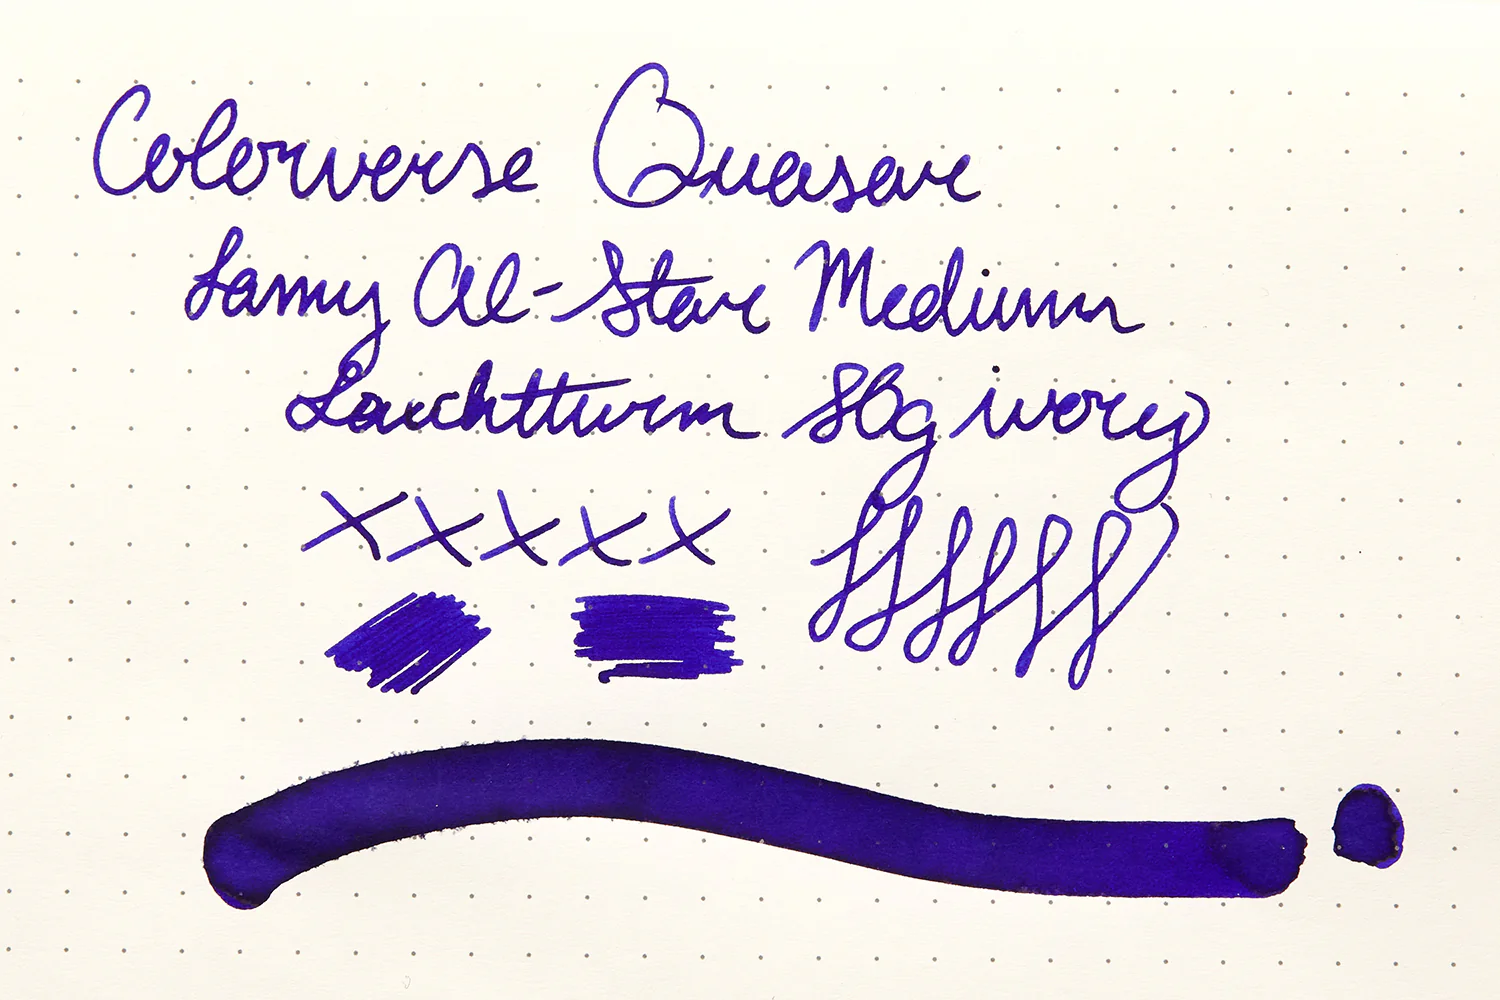 Colorverse Quasar
Lamy Al-Star Medium
Leuchtturm 80g ivory
xxxxx